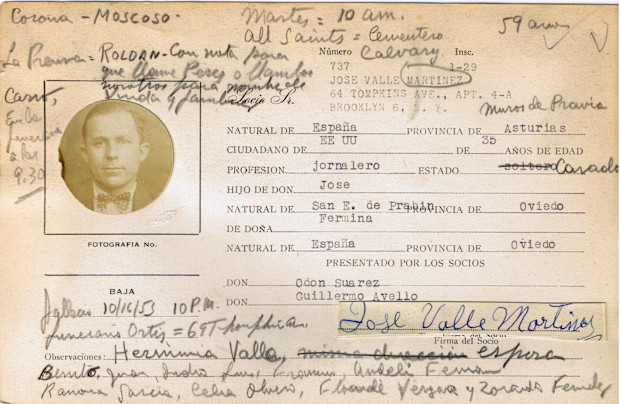 Corona - MOSCOSO -
Martes = 10 am.
59 años
All Saints = Cementerio
Calvary.
La Prensa = ROLDAN - Con nota para
que llame Poses o llambos
nosotros para nombre de
viuda y familia
Carro,
En la
funeraria
a las
9.30
Número Insc.
737 1-29
JOSE VALLE MARTINEZ
64 TOMPKINS AVE., APT. 4-A
BROOKLYN 6, N. Y.
Socio Sr.
Muros de Pravia
NATURAL DE España PROVINCIA DE Asturias
CIUDADANO DE EE UU DE 35 AÑOS DE EDAD
PROFESION jornalero ESTADO soltero Casado
HIJO DE DON Jose
NATURAL DE San E. de Prabin PROVINCIA DE Oviedo
DE DOÑA Fermina
NATURAL DE España PROVINCIA DE Oviedo
FOTOGRAFIA No.
PRESENTADO POR LOS SOCIOS
DON Odon Suarez
DON Guillermo Avello
BAJA
Falleció 10/16/53 10 P.M.
Funeraria Ortiz = 697-
José Valle Martinez
Firma del Socio
Observaciones: Herminia Valle, misma dirección esposa
Benito, Juan, Isidro, Luis,
Ramona Garcia, Celia Olivero, Vergara y Zoraida